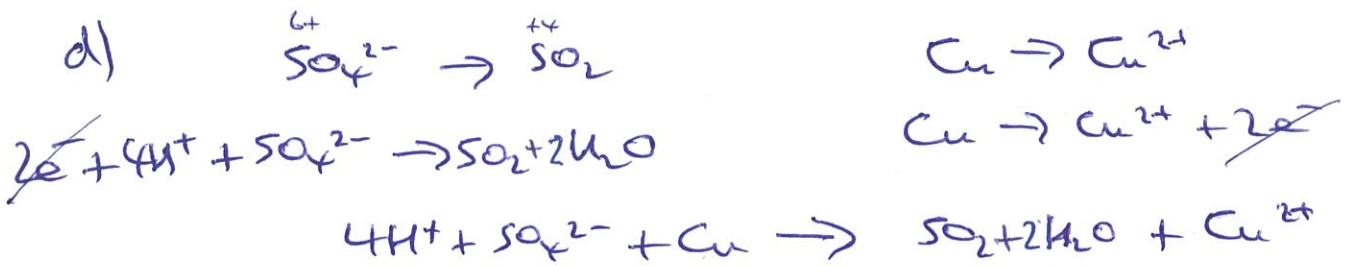 d) 6+ SO₄²⁻ → +4 SO₂ Cu → Cu²⁺
2e⁻ + 4H⁺ + SO₄²⁻ → SO₂ + 2H₂O Cu → Cu²⁺ + 2e⁻
4H⁺ + SO₄²⁻ + Cu → SO₂ + 2H₂O + Cu²⁺